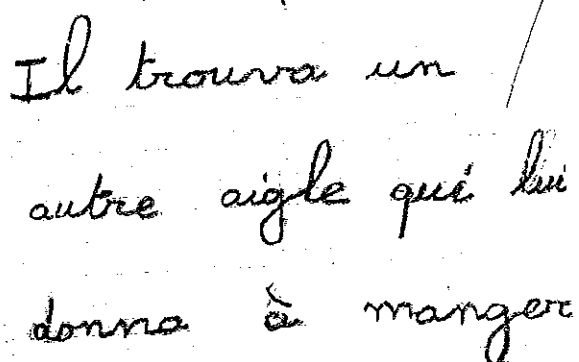 Il trouva un
autre aigle qui lui
donna à manger